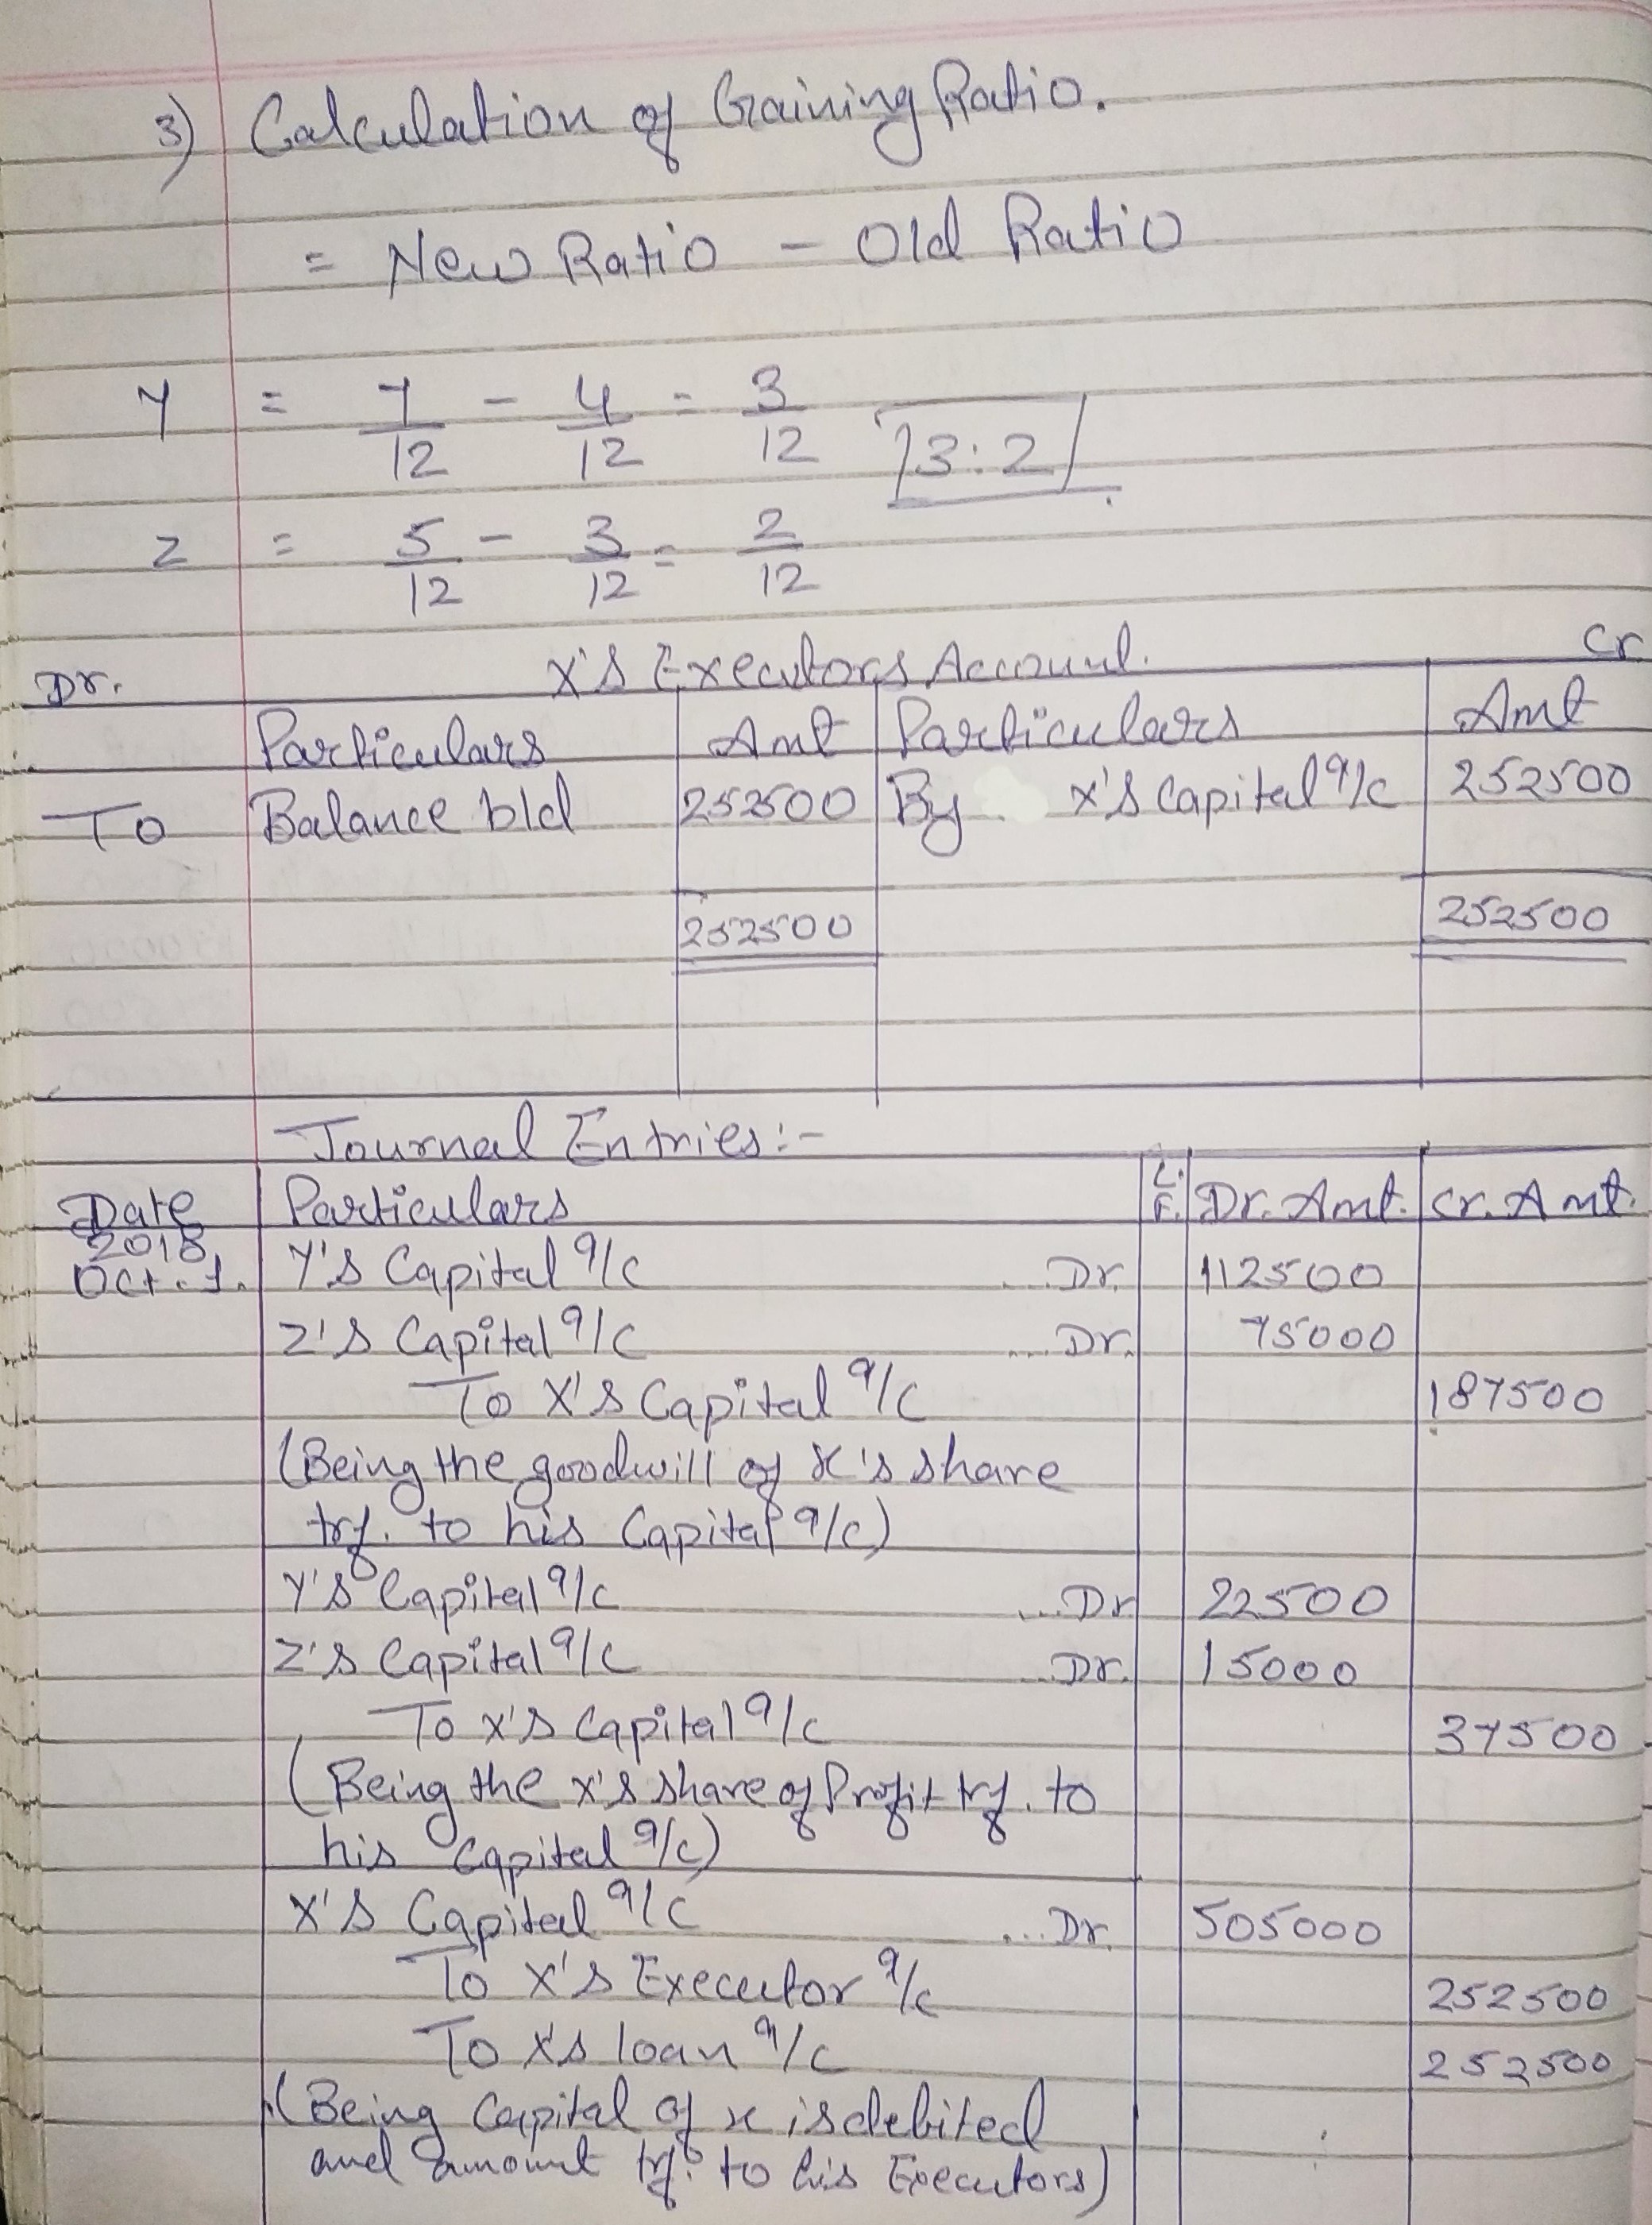 3) Calculation of Gaining Ratio.
= New Ratio - Old Ratio
Y = 7/12 - 4/12 = 3/12 3:2
Z = 5/12 - 3/12 = 2/12
Dr. X's Executors Account. Cr
Particulars Amt Particulars Amt
To Balance b/d 252500 By X's Capital a/c 252500
252500 252500
Journal Entries:-
Date Particulars L.F. Dr. Amt. Cr. Amt.
2018
Oct. 1. Y's Capital a/c ...Dr. 112500
Z's Capital a/c ....Dr. 75000
To X's Capital a/c 187500
(Being the goodwill of X's share
trf. to his Capital a/c)
Y's Capital a/c ...Dr 22500
Z's Capital a/c ...Dr. 15000
To X's Capital a/c 37500
(Being the X's share of Profit trf. to
his Capital a/c)
X's Capital a/c ...Dr. 505000
To X's Executor a/c 252500
To X's loan a/c 252500
(Being Capital of x is debited
and amount trf. to his Executors)